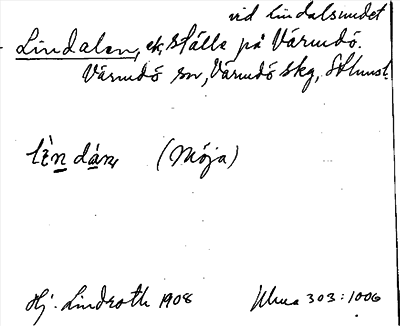 vid Lindalsundet
Lindalen, ek, ställe på Värmdö.
Värmdö sn, Värmdö skg, Sthms l.
(Möja)
Hj. Lindroth 1908 303:1006